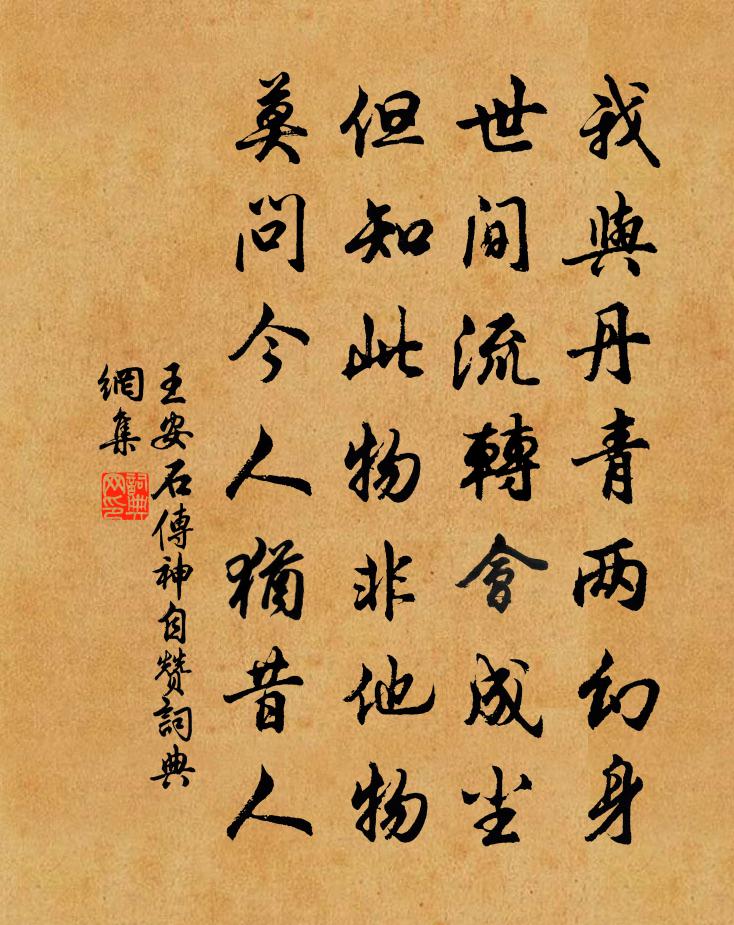 我與丹青两幻身
世间流轉會成尘
但知此物非他物
莫问今人猶昔人
王安石傳神自赞詞典
網集
詞典网印